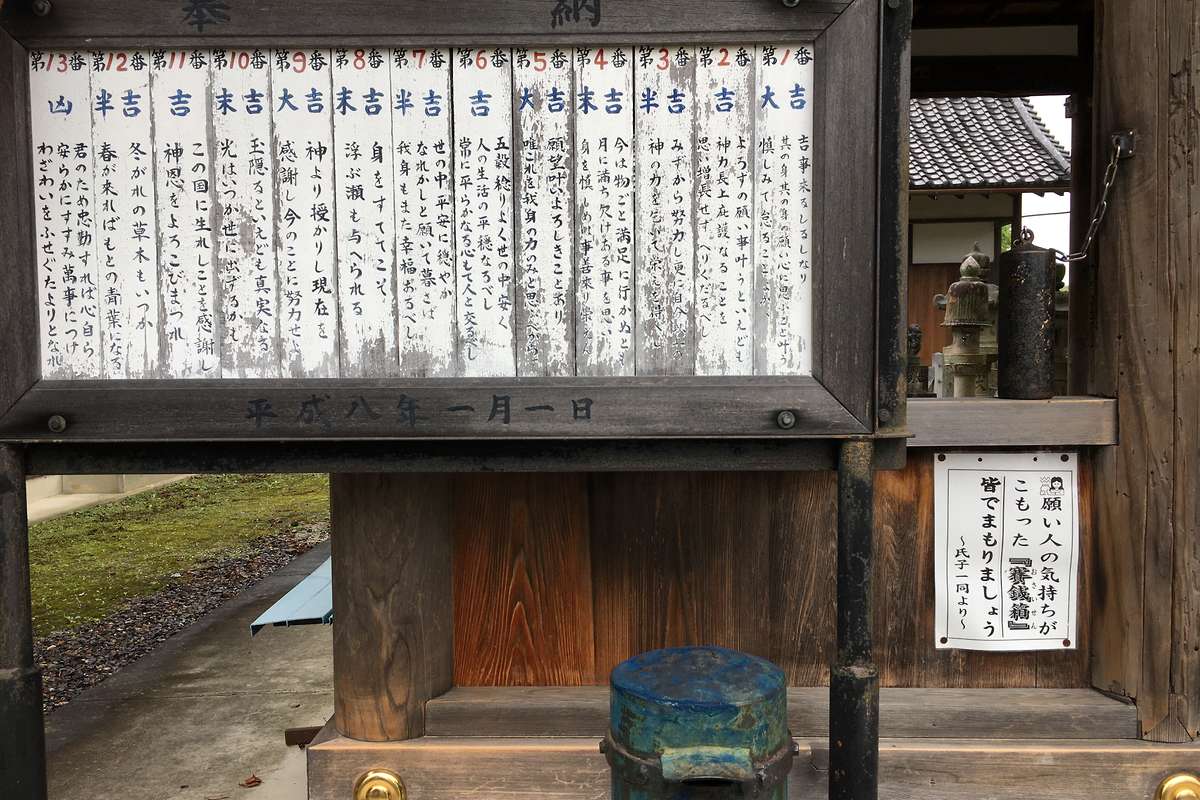 奉納
第1番
大吉
吉事来るしるしなり
慎しみて怠ることなかれ
第2番
吉
よろずの願い事叶うといえども
神力長上庇護なることを
思い増長せずへりくだるべし
第3番
半吉
みずから努力し更に自へ
神の力を
第4番
末吉
今は物ごと満足に行かぬとも
月に満ち欠けある事を思い
身を慎しめ
第5番
大吉
願望叶いよろしきことあり
唯これを我身の力のみと思うべからず
第6番
吉
五穀稔りよく世の中安く
人の生活の平穏なるべし
常に平らかなる心もて人と交るべし
第7番
半吉
世の中平安に穏やか
なれかしと願いて暮さば
我身もまた幸福おるべし
第8番
末吉
身をすててこそ
浮ぶ瀬も与へられる
第9番
大吉
神より授かりし現在を
感謝し今のことに努力せよ
第10番
末吉
玉隠るといえども真実なる
光はいつか世に出づるかも
第11番
吉
この国に生れしことを感謝し
神恩をよろこびまつれ
第12番
半吉
冬がれの草木もいつか
春が来ればもとの青葉になる
第13番
凶
君のため忠勤すれば心自ら
安らかにすすみ萬事につけ
わざわいをふせぐたよりとなれ
平成八年一月一日
願い人の気持ちが
こもった『賽銭箱』
おさいせん
皆でまもりましょう
～氏子一同より～